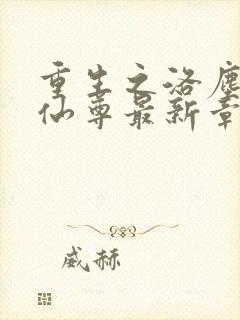 重生之洛尘
仙尊最新章
威赫